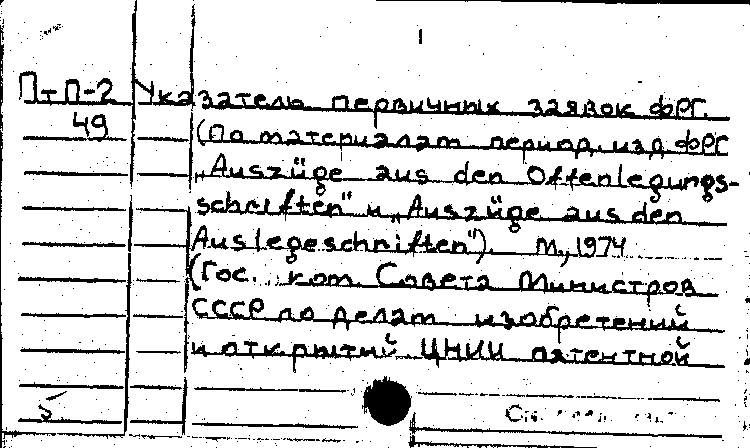 ПтП-2 Указатель первичных заявок ФРГ.
49 (По материалам период. изд. ФРГ
„Auszüge aus den Offenlegungs-
schriften" и „Auszüge aus den
Auslegeschriften"). М., 1974
(Гос. ком. Совета Министров
СССР по делам изобретений
и открытий ЦНИИ патентной
5